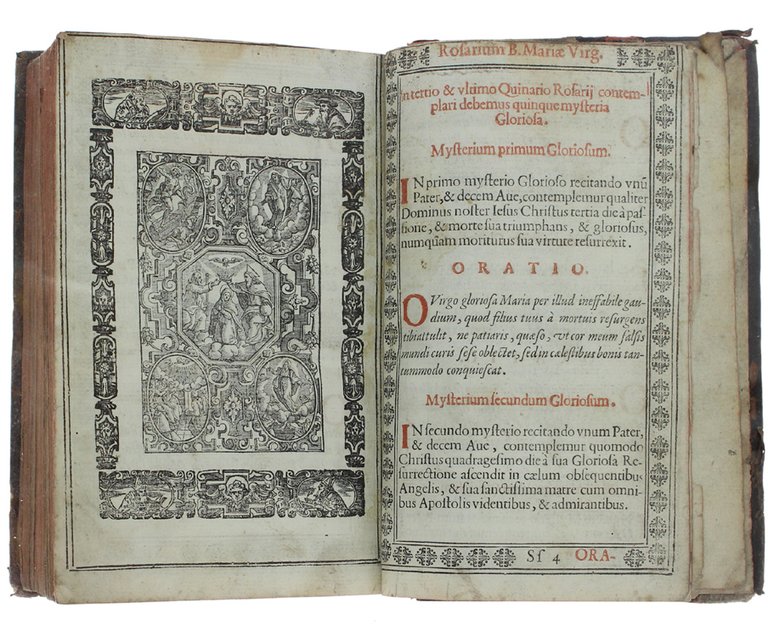 Rosarium B. Mariæ Virg.
In tertio & vltimo Quinario Rosarij contem-
plari debemus quinque mysteria
Gloriosa.
Mysterium primum Gloriosum.
IN primo mysterio Glorioso recitando vnū
Pater, & decem Aue, contemplemur qualiter
Dominus noster Iesus Christus tertia die à pas-
sione, & morte sua triumphans, & gloriosus,
numquam moriturus sua virtute resurrexit.
ORATIO.
O Virgo gloriosa Maria per illud ineffabile gau-
dium, quod filius tuus à mortuis resurgens
tibi attulit, ne patiaris, quæso, vt cor meum falsis
mundi curis sese oblectet, sed in cælestibus bonis tan-
tummodo conquiescat.
Mysterium secundum Gloriosum.
IN secundo mysterio recitando vnum Pater,
& decem Aue, contemplemur quomodo
Christus quadragesimo die à sua Gloriosa Re-
surrectione ascendit in cælum obsequentibus
Angelis, & sua sanctissima matre cum omni-
bus Apostolis videntibus, & admirantibus.
Sf 4 ORA-